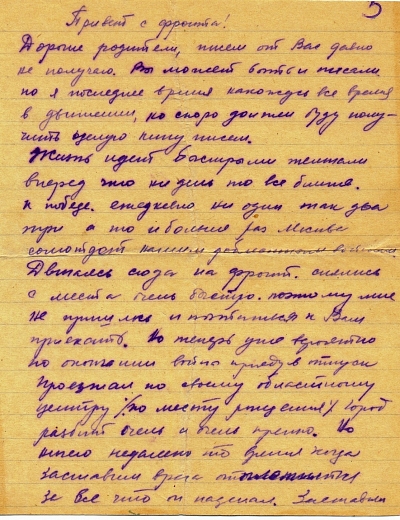 5
Привет с фронта!
Дорогие родители, писем от Вас давно
не получаю. Вы может быть и писали
но я последнее время нахожусь все время
в движении, но скоро должен буду полу-
чить целую кипу писем.
Жизнь идет быстрыми темпами
вперед что ни день то все ближе
к победе. ежедневно ни один так два
три а то и больше раз Москва
салютует нашим
Двигаясь сюда на фронт. снялись
с места очень быстро. поэтому мне
не пришлось и попытаться к Вам
приехать. Но теперь уже вероятно
по окончании войны приеду в отпуск
Проезжал по своему областному
центру /по месту рождения/ город
разбит очень и очень крепко. Но
недалеко то время когда
заставим врага
за все что он наделал. Заставим